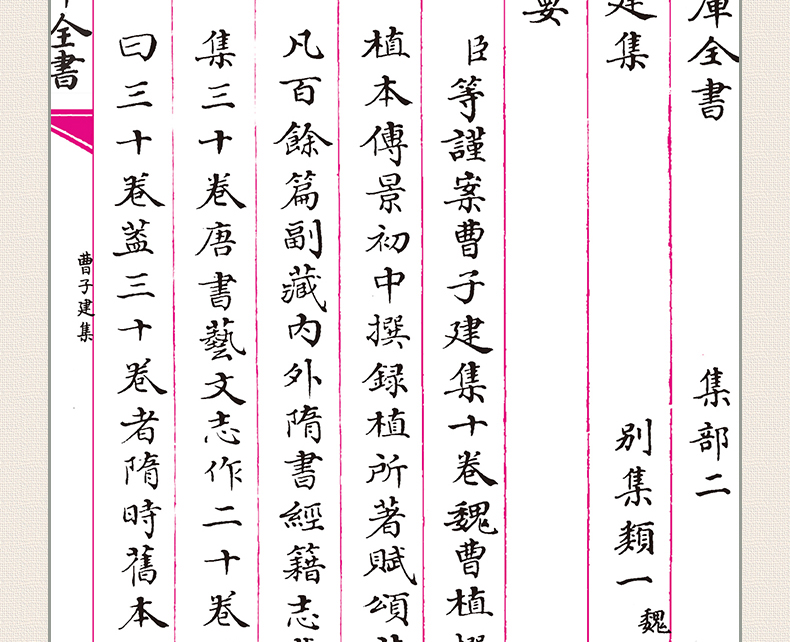 庫全書 集部二
建集 別集類一 魏
要
臣等謹案曹子建集十卷魏曹植
植本傳景初中撰録植所著賦頌
凡百餘篇副藏内外隋書經籍志
集三十卷唐書藝文志作二十卷
曰三十卷葢三十卷者隋時舊本
全書
曹子建集